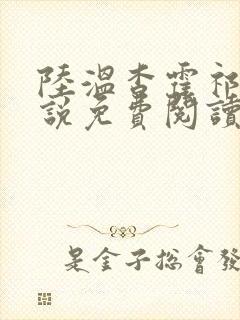 陸溫杳霍祁
說免費閱讀
是金子總會發